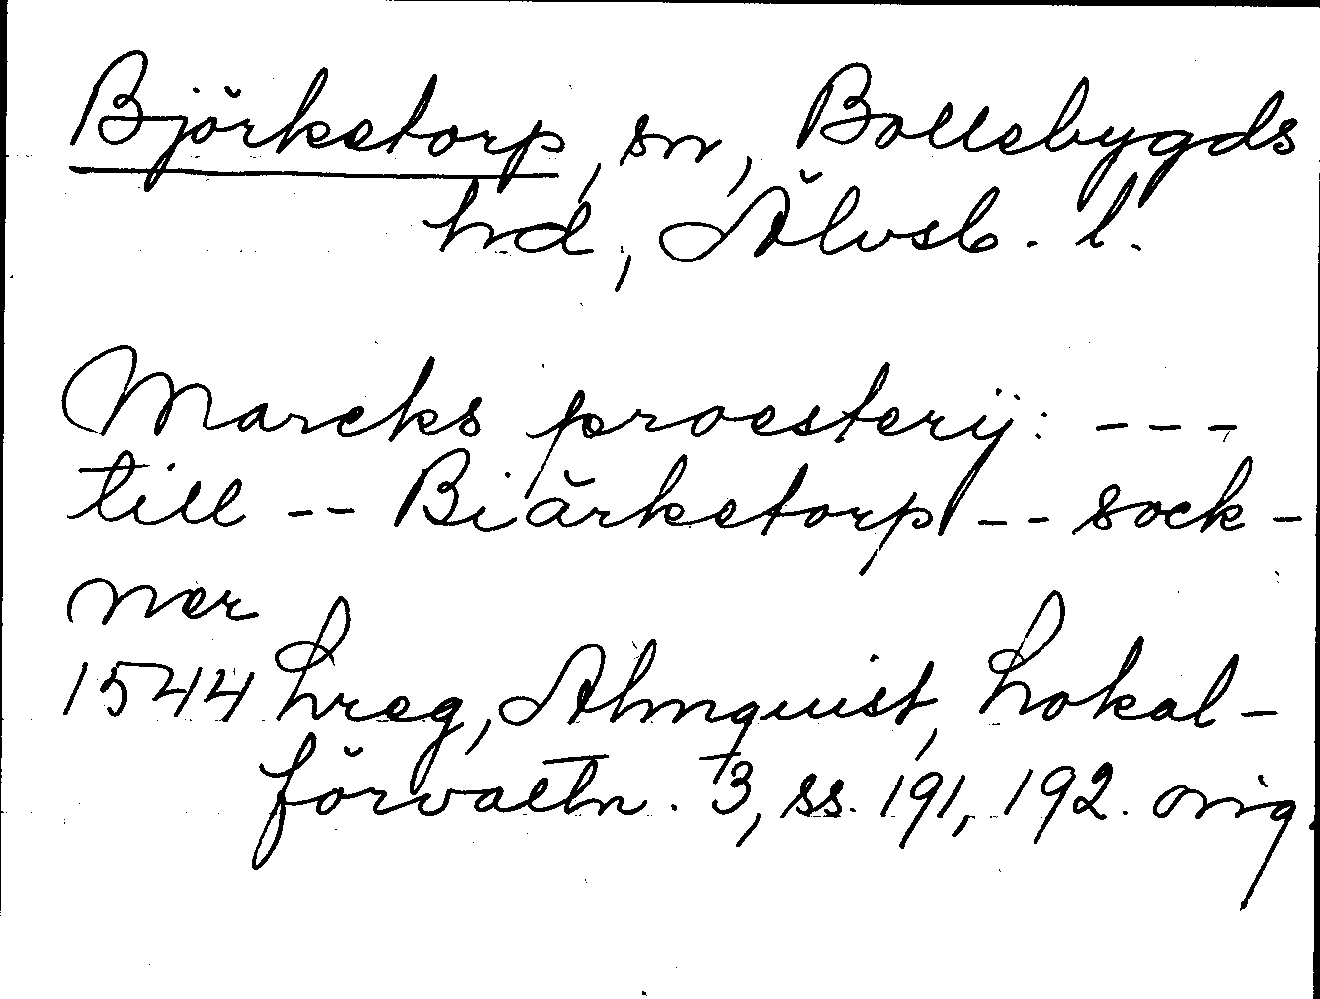 Björketorp, sn, Bollebygds
hd, Älvsb. l.
Marcks proesterij: ---
till -- Biärketorp -- sock-
ner
1544 Lreg, Almquist, Lokal-
förvaltn. 3, ss. 191, 192. orig.